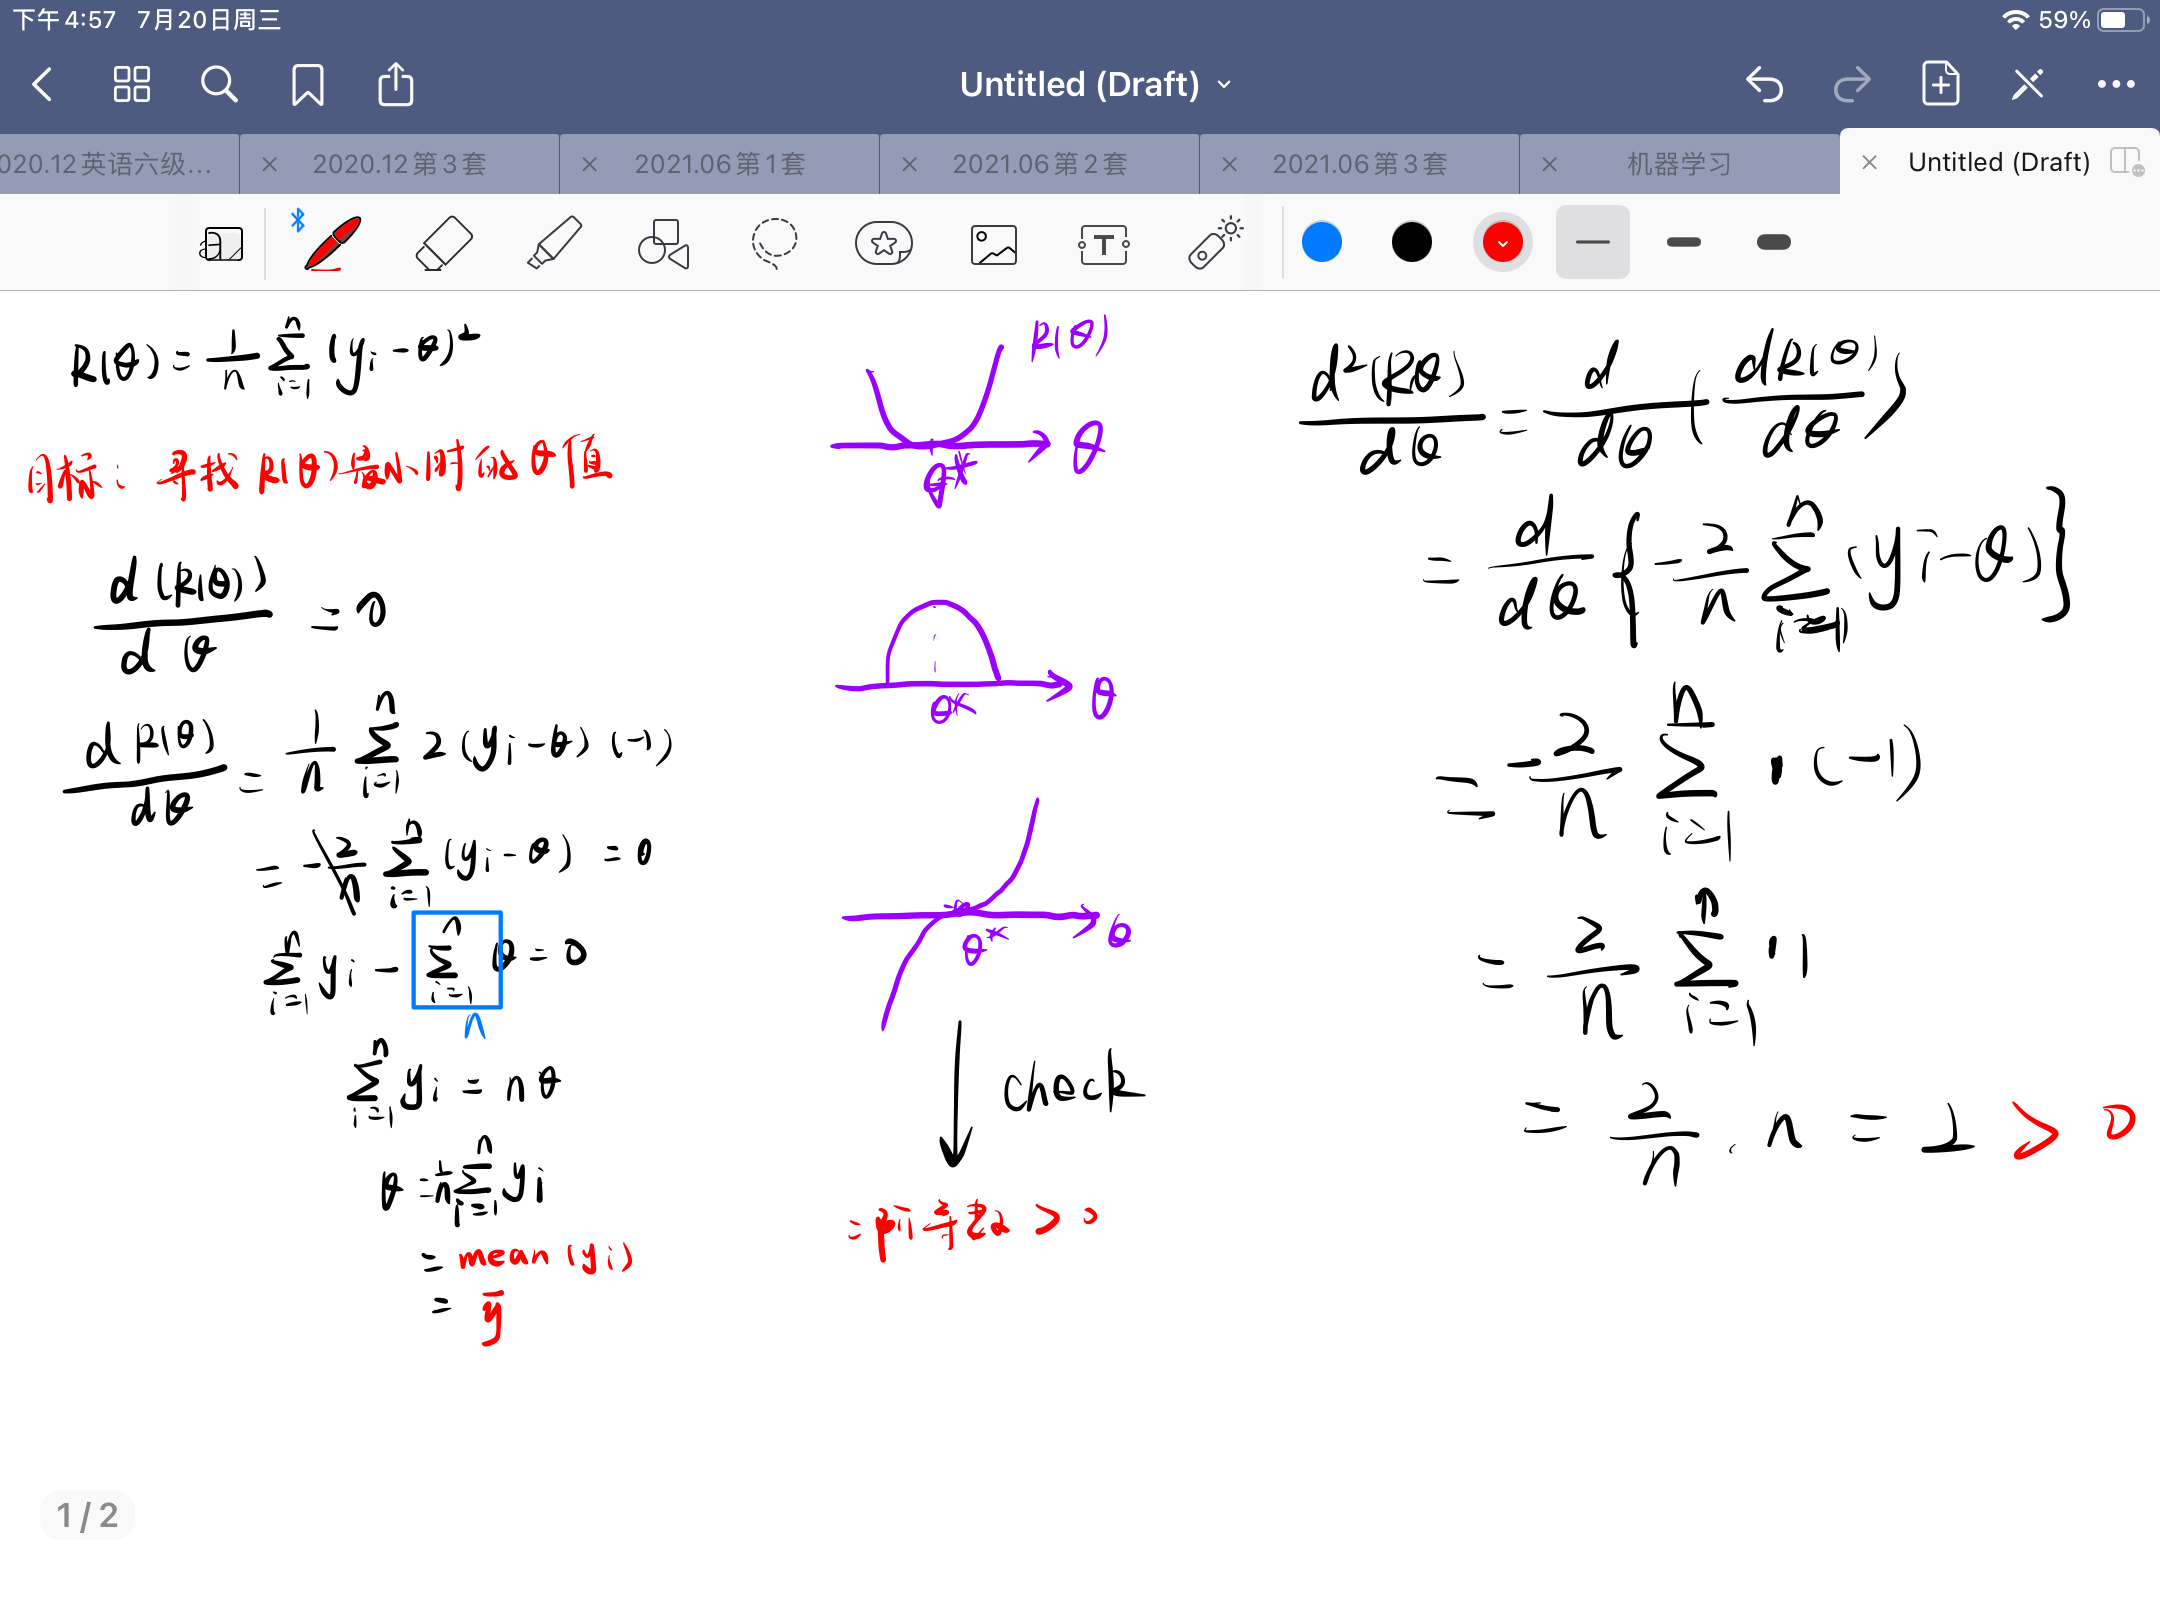 下午4:57 7月20日周三
59%
Untitled (Draft)
020.12英语六级...
2020.12第3套
2021.06第1套
2021.06第2套
2021.06第3套
机器学习
Untitled (Draft)
R(θ) = 1/n Σ_{i=1}^{n} (y_i - θ)²
目标：寻找 R(θ) 最小时的 θ 值
d(R(θ))/dθ = 0
dR(θ)/dθ = 1/n Σ_{i=1}^{n} 2(y_i - θ)(-1)
= -2/n Σ_{i=1}^{n} (y_i - θ) = 0
Σ_{i=1}^{n} y_i - Σ_{i=1}^{n} θ = 0
n
Σ_{i=1}^{n} y_i = nθ
θ = 1/n Σ_{i=1}^{n} y_i
= mean(y_i)
= ȳ
R(θ)
θ
θ*
θ*
θ
θ*
θ
check
二阶导数 > 0
d²(Rθ)/dθ = d/dθ (dR(θ)/dθ)
= d/dθ {-2/n Σ_{i=1}^{n} (y_i - θ)}
= -2/n Σ_{i=1}^{n} · (-1)
= 2/n Σ_{i=1}^{n} · 1
= 2/n · n = 2 > 0
1 / 2